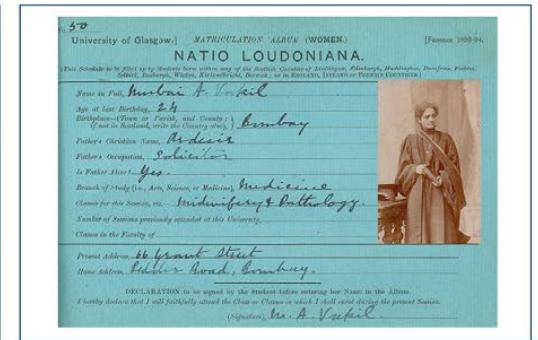 No. 50
University of Glasgow.] MATRICULATION ALBUM (WOMEN.) [SESSION 1893-94.
NATIO LOUDONIANA.
(This Schedule to be filled up by Students born within any of the Scottish Counties of Linlithgow, Edinburgh, Haddington, Dumfries, Peebles,
Selkirk, Roxburgh, Wigton, Kirkcudbright, Berwick; or in ENGLAND, IRELAND or FOREIGN COUNTRIES.)
Name in Full, Merbai A. Vakil
Age at last Birthday, 24
Birthplace—(Town or Parish, and County; if not in Scotland, write the Country also), } Bombay
Father's Christian Name, Ardesir
Father's Occupation, Solicitor
Is Father Alive? Yes.
Branch of Study (i.e., Arts, Science, or Medicine), Medicine
Classes for this Session, viz. Midwifery & Pathology.
Number of Sessions previously attended at this University,
Classes in the Faculty of
Present Address, 66 Grant Street
Home Address, Pedder Road, Bombay.
DECLARATION to be signed by the Student before entering her Name in the Album.
I hereby declare that I will faithfully attend the Class or Classes in which I shall enrol during the present Session.
(Signature), M. A. Vakil.